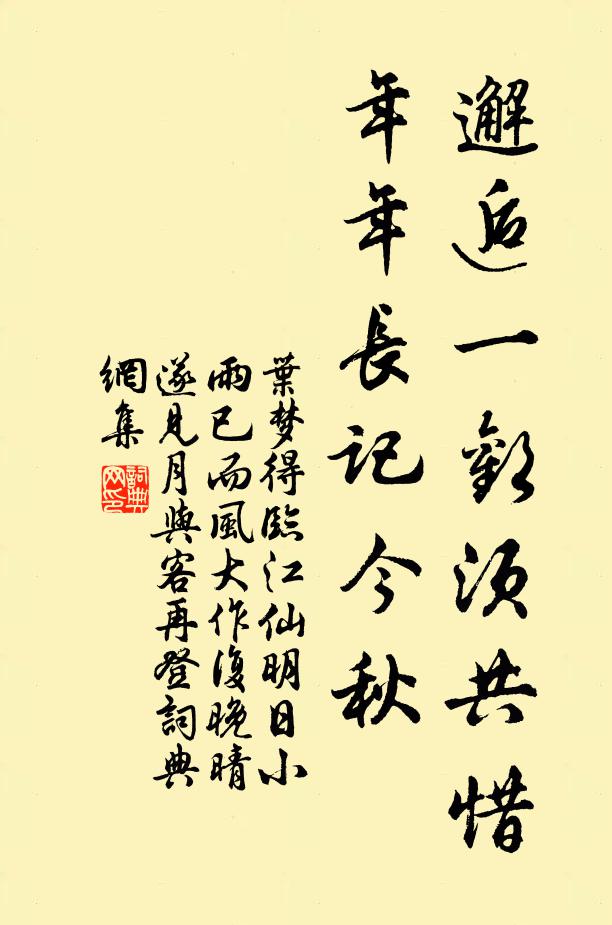 邂逅一歡須共惜
年年長記今秋
葉梦得臨江仙明日小
雨已而風大作復晚晴
遂見月與客再登詞典
網集
詞典網印